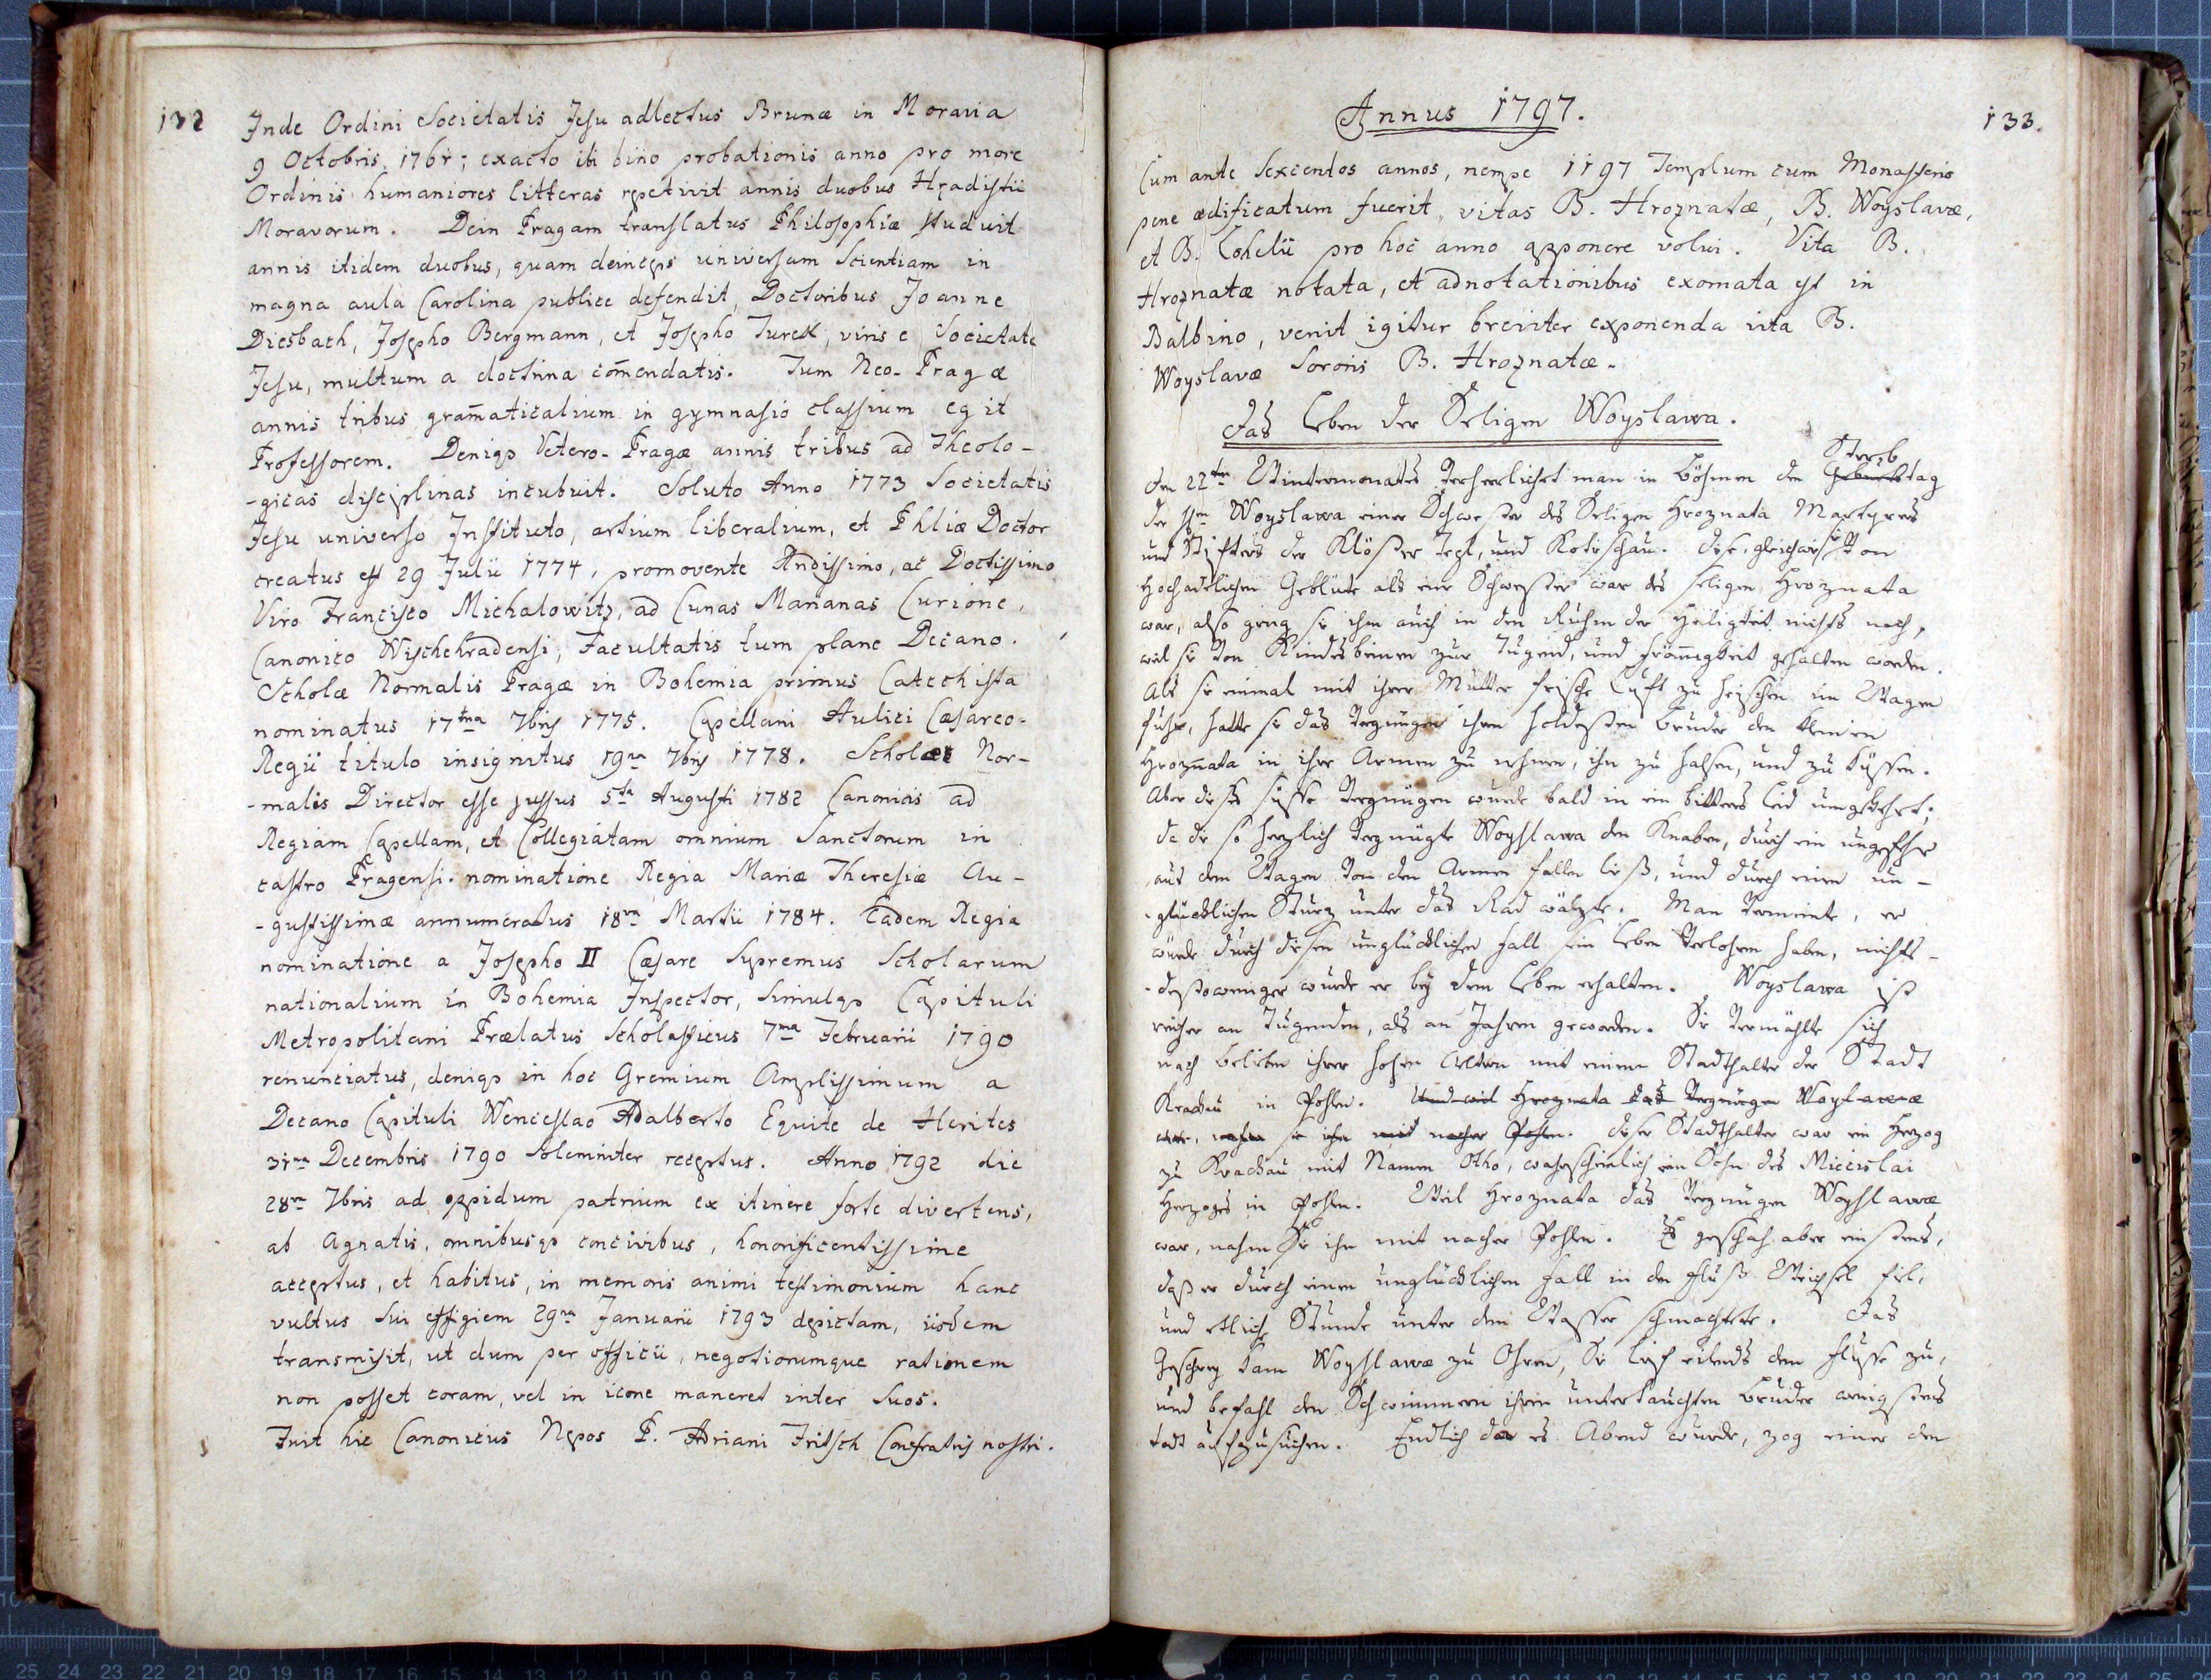 132
Inde Ordini Societatis Jesu adlectus Brunæ in Moravia
9 Octobris 1761; exacto ibi bino probationis anno pro more
Ordinis humaniores litteras repetivit annis duobus Hradistii
Moravorum. Dein Pragam translatus Philosophiæ studuit
annis itidem duobus, quam deinceps universam Scientiam in
magna aula Carolina publice defendit, Doctoribus Joanne
Diesbach, Josepho Bergmann, et Josepho Turek, viris e Societate
Jesu, multum a doctrina com̄endatis. Tum Neo-Pragæ
annis tribus gram̄aticalium in gymnasio classium egit
Professorem. Deniqs Vetero-Pragæ annis tribus ad Theolo-
-gicas disciplinas incubuit. Soluto Anno 1773 Societatis
Jesu universo Instituto, artium liberalium, et Phliæ Doctor
creatus est 29 Julii 1774, promovente Rndissimo, ac Doctissimo
Viro Francisco Michalowitz, ad Cunas Marianas Curione,
Canonico Wischehradensi, Facultatis tum plane Decano.
Scholæ Normalis Pragæ in Bohemia primus Catechista
nominatus 17tma 7bris 1775. Capellani Aulici Cæsareo-
Regii titulo insignitus 19na 7bris 1778. Scholæ Nor-
-malis Director esse jussus 5ta Augusti 1782 Canonicis ad
Regiam Capellam, et Collegiatam omnium Sanctorum in
castro Pragensi nominatione Regia Mariæ Theresiæ Au-
-gustissimæ annumeratus 18va Martii 1784. Eadem Regia
nominatione a Josepho II Cæsare Supremus Scholarum
nationalium in Bohemia Inspector, simulqs Capituli
Metropolitani Prælatus Scholasticus 7ma Februarii 1790
renunciatus, deniqs in hoc Gremium Amplissimum a
Decano Capituli Wenceslao Adalberto Equite de Herites
31ma Decembris 1790 solemniter receptus. Anno 1792 die
28va 7bris ad oppidum patrium ex itinere forte divertens,
ab Agnatis, omnibusqs concivibus, honorificentissime
acceptus, et habitus, in memoris animi testimonium hanc
vultus sui effigiem 29na Januarii 1793 depictam, iisdem
transmisit, ut dum per officii, negotiorumque rationem
non posset coram, vel in icone maneret inter suos.
Fuit hic Canonicus Nepos P. Adriani Fritsch Confratris nostri.
Annus 1797.
133.
Cum ante sexcentos annos, nempe 1197 Templum cum Monasterio
pene ædificatum fuerit, vitas B. Hroznatæ, B. Woyslavæ,
et B. Lohelii pro hoc anno apponere volui. Vita B.
Hroznatæ notata, et adnotationibus exornata est in
Balbino, venit igitur breviter exponenda vita B.
Woyslavæ Sororis B. Hroznatæ.
Das Leben der Seligen Woyslawa.
Sterb
Den 22ten Wintermonates verherrlichet man in Böhmen den Geburtstag
der Woyslawa einer Schwester des Seligen Hroznata Martyrers
und Stifters der Klöster Tepl, und Kotieschau. Diese, gleichwie sie von
Hochadelichen Geblüte als eine Schwester war des seligen Hroznata
war, also gieng sie ihm auch in den Ruhm der Heiligkeit nichts nach,
weil sie von Kindesbeinen zur Tugend, und From̄igkeit gehalten worden.
Als sie einmal mit ihrer Mutter frische Luft zu heischen im Wagen
fuhr, hatte sie das Vergnügen ihren holdesten Bruder den kleinen
Hroznata in ihre Armen zu nehmen, ihn zu halsen, und zu küssen.
Aber dieses süsse Vergnügen wurde bald in ein bitteres Leid umgekehrt;
da die so herzlich vergnügte Woyslawa den Knaben, durch ein ungefehr
aus dem Wagen von den Armen fallen ließ, und durch einen un-
-glücklichen Sturz unter das Rad wälzte. Man vermeinte, er
würde durch diesen unglücklichen Fall sein Leben verlohren haben, nichts-
-destoweniger wurde er bey dem Leben erhalten. Woyslawa ist
reicher an Tugenden, als an Jahren geworden. Sie vermählte sich
nach Belieben ihrer hohen Aeltern mit einem Stadthalter der Stadt
Krackau in Pohlen. Und weil Hroznata das Vergnügen Woyslawæ
war, nahm sie ihn mit nacher Pohlen. Dieser Stadthalter war ein Herzog
zu Krackau mit Namen Otho, wahrscheinlich ein Sohn des Miecislai
Herzoges in Pohlen. Weil Hroznata das Vergnügen Woyslawæ
war, nahm Sie ihn mit nacher Pohlen. Es geschah aber einstens,
daß er durch einen unglücklichen Fall in den Fluß Weichsel fiel,
und etliche Stunde unter dem Wasser schmachtete. Das
Geschrey kam Woyslawæ zu Ohren, Sie lief eilends dem Flusse zu,
und befahl den Schwimmern ihren untertauchten Bruder wenigstens
todt aufzusuchen. Endlich da es Abend wurde, zog einer den